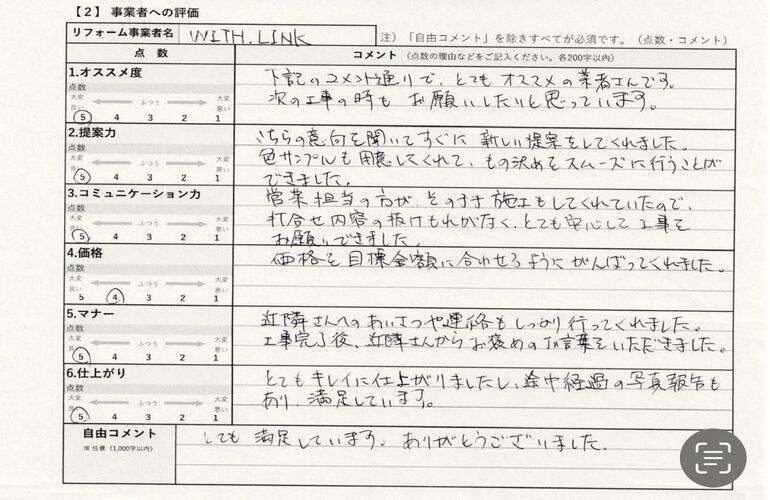 【2】事業者への評価
リフォーム事業者名 WITH.LINK 注)「自由コメント」を除きすべてが必須です。(点数・コメント)
点 数 コメント(点数の理由などをご記入ください。各200字以内)
1.オススメ度
点数
大変良い ふつう 大変悪い
5 4 3 2 1
下記のコメント通りで、とてもオススメの業者さんです。
次の工事の時もお願いしたいと思っています。
2.提案力
点数
大変良い ふつう 大変悪い
5 4 3 2 1
こちらの意向を聞いてすぐに新しい提案をしてくれました。
色サンプルも用意してくれて、もの決めをスムーズに行うことが
できました。
3.コミュニケーション力
点数
大変良い ふつう 大変悪い
5 4 3 2 1
営業担当の方が、そのまま施工もしてくれていたので、
打合せ内容の抜けもれがなく、とても安心して工事を
お願いできました。
4.価格
点数
大変良い ふつう 大変悪い
5 4 3 2 1
価格を目標金額に合わせるようにがんばってくれました。
5.マナー
点数
大変良い ふつう 大変悪い
5 4 3 2 1
近隣さんへのあいさつや連絡もしっかり行ってくれました。
工事完了後、近隣さんからお褒めのお言葉をいただきました。
6.仕上がり
点数
大変良い ふつう 大変悪い
5 4 3 2 1
とてもキレイに仕上がりましたし、途中経過の写真報告も
あり、満足しています。
自由コメント
※ 任意(1,000字以内)
とても満足しています。ありがとうございました。